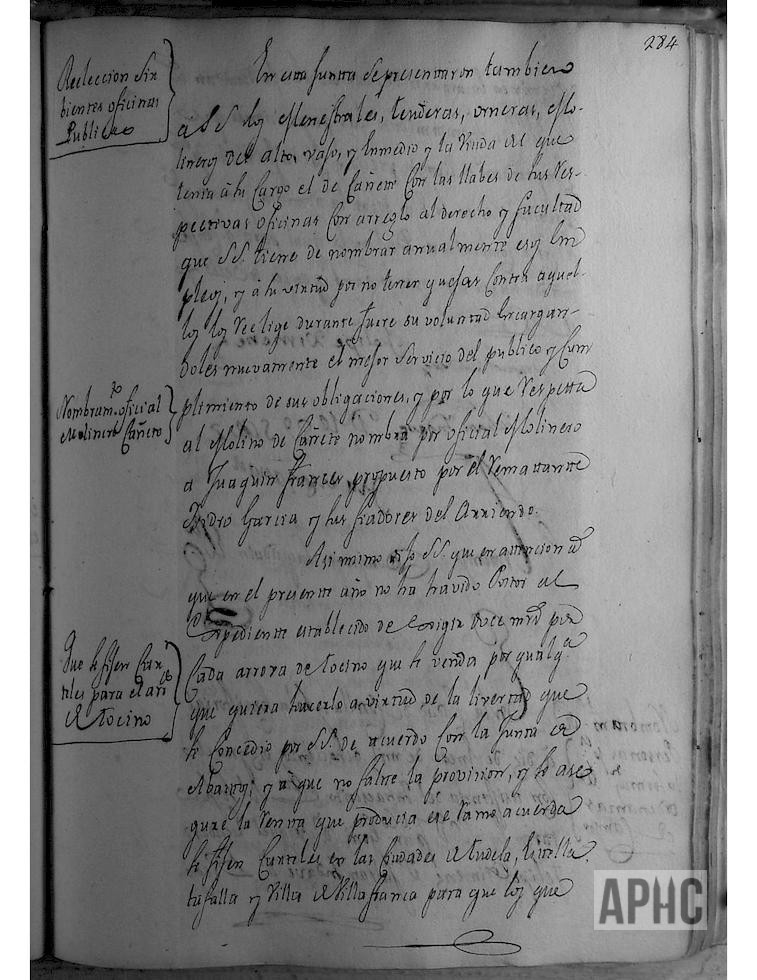 284
Reeleccion Sir
bientes oficinas
Publicas
En esta Juntta Sepresenttaron tambien
á S.S. los Menestrales, tenderas, orneras, Mo-
lineros del alto, vajo, y Enmedio y la Viuda del que
tenia á su Cargo el de Cañete Con las llabes de sus Res-
pectivas oficinas Con arreglo al derecho y facultad
que S.S. tiene de nombrar anualmente esos Em
pleos, y á su virtud por no tener quejas Contra aquel-
los los Reelige durante fuere su voluntad Encargan-
doles nuevamente el mejor Servicio del publico y Cum
plimiento de sus obligaciones, y por lo que Respetta
Nombram.to oficial
Molinero Cañete
al Molino de Cañete nombra por oficial Molinero
a Juaquin Frances, propuesto por el Remattante
Isidro Garcia y sus fiadores del Arriendo.
Asi mimo dijo S.S. que en attencion á
que en el presente año no ha havido Postor al
Expediente establecido de Exigir doce mrs por
Cada arrova de tocino que se venda por qualq.a
Que se fijen Car
teles para el arri.do
del tocino
que quiera hacerlo a virtud de la livertad que
se Concedio por S.S. de acuerdo Con la Junta de
Abastos, y á que no falte la provision, y se ase
gure la Rentta que producia ese Ramo acuerda
se fijen Carteles en las Ciudades de Tudela,
tafalla y Villa de Villafranca para que los que
APHC